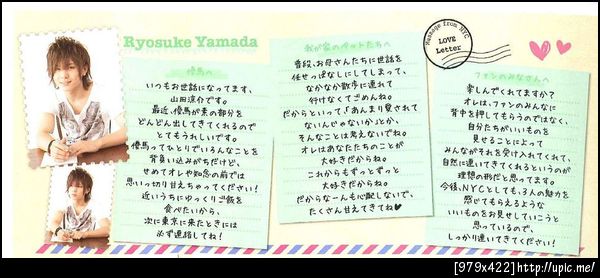 Ryosuke Yamada
優馬へ
いつもお世話になってます、
山田涼介です。
最近、優馬が素の部分を
どんどん出してきてくれるので
とてもうれしいです。
優馬ってひとりでいろんなことを
背負い込みがちだけど、
せめてオレや知念の前では
思いっ切り甘えちゃってください!
近いうちにゆっくりご飯を
食べたいから、
次に東京に来たときには
必ず連絡してね!
我が家のペットたちへ
普段、お母さんたちに世話を
任せっぱなしにしてしまって、
なかなか散歩に連れて
行けなくてごめんね。
だからといって、「あんまり愛されて
ないんじゃないか」とか、
そんなことは考えないでね。
オレはあなたたちのことが
大好きだからね。
これからもずっとずっと
大好きだからね。
だからなーんも心配しないで、
たくさん甘えてきてね♥
Message from NYC
LOVE
Letter
ファンのみなさんへ
楽しんでくれてますか?
オレは、ファンのみんなに
背中を押してもらうのではなく、
自分たちがいいものを
見せることによって
みんながそれを受け入れてくれて、
自然に連いてきてくれるというのが
理想の形だと思ってます。
今後、NYCとしても、3人の魅力を
感じてもらえるような
いいものをお見せしていこうと
思っているので、
しっかり連いてきてください!
[979x422]http://uplc.me/